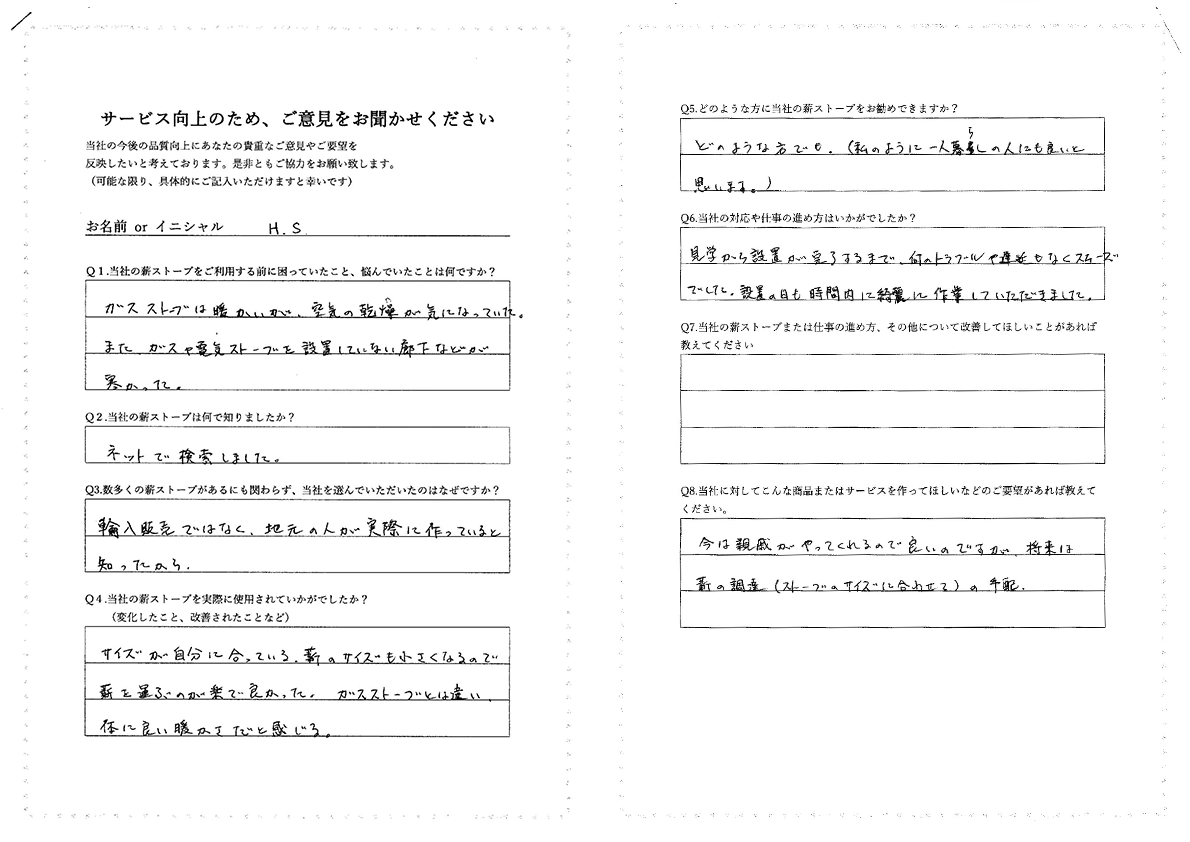 サービス向上のため、ご意見をお聞かせください
当社の今後の品質向上にあなたの貴重なご意見やご要望を
反映したいと考えております。是非ともご協力をお願い致します。
（可能な限り、具体的にご記入いただけますと幸いです）
お名前 or イニシャル H.S
Q1.当社の薪ストーブをご利用する前に困っていたこと、悩んでいたことは何ですか？
ガスストーブは暖かいが、空気の乾燥が気になっていた。
また、ガスや電気ストーブを設置していない廊下などが
寒かった。
Q2.当社の薪ストーブは何で知りましたか？
ネットで検索しました。
Q3.数多くの薪ストーブがあるにも関わらず、当社を選んでいただいたのはなぜですか？
輸入販売ではなく、地元の人が実際に作っていると
知ったから。
Q4.当社の薪ストーブを実際に使用されていかがでしたか？
（変化したこと、改善されたことなど）
サイズが自分に合っている。薪のサイズも小さくなるので
薪を運ぶのが楽で良かった。 ガスストーブとは違い、
体に良い暖かさだと感じる。
Q5.どのような方に当社の薪ストーブをお勧めできますか？
どのような方でも。（私のように一人暮らしの人にも良いと
思います。）
Q6.当社の対応や仕事の進め方はいかがでしたか？
見学から設置が完了するまで、何のトラブルや遅延もなくスムーズ
でした。設置の日も時間内に綺麗に作業していただきました。
Q7.当社の薪ストーブまたは仕事の進め方、その他について改善してほしいことがあれば
教えてください
Q8.当社に対してこんな商品またはサービスを作ってほしいなどのご要望があれば教えて
ください。
今は親戚がやってくれるので良いのですが、将来は
薪の調達（ストーブのサイズに合わせて）の手配。